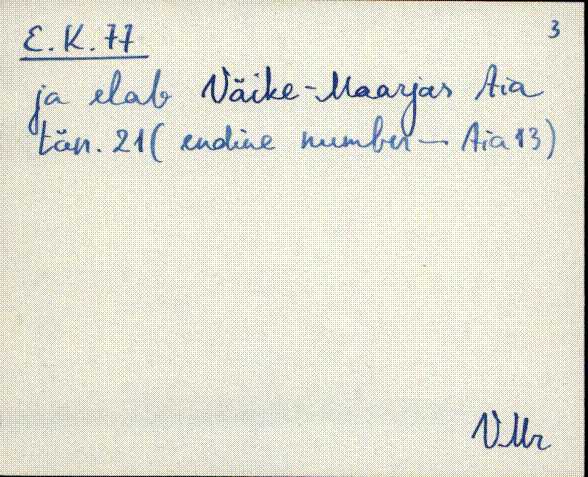 3
E. K. 77
ja elab Väike-Maarjas Aia
tän. 21 ( endine number — Aia 13)
VMr